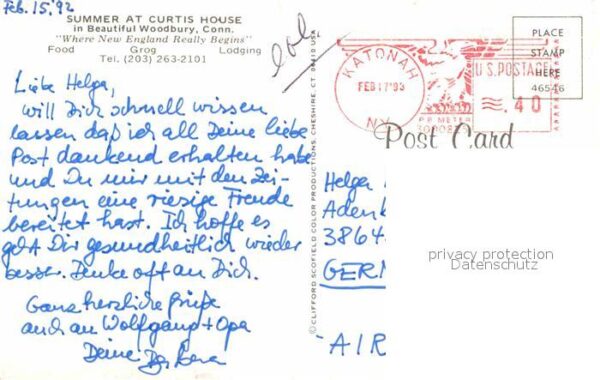 Feb. 15, 92
SUMMER AT CURTIS HOUSE
in Beautiful Woodbury, Conn.
"Where New England Really Begins"
Food Grog Lodging
Tel. (203) 263-2101
Liebe Helga,
will Dich schnell wissen
lassen daß ich all Deine liebe
Post dankend erhalten habe
und Du mir mit den Zei-
tungen eine riesige Freude
bereitet hast. Ich hoffe es
geht Dir gesundheitlich wieder
besser. Denke oft an Dich.
Ganz herzliche Grüße
auch an Wolfgang + Opa
Deine Barbara
© CLIFFORD SCOFIELD COLOR PRODUCTIONS, CHESHIRE, CT. 06410 USA
KATONAH
FEB 17'93
NY
U.S. POSTAGE
.40
P.B. METER
PLACE
STAMP
HERE
46546
Post Card
Helga
Aden
3864
GER
AIR
privacy protection
Datenschutz